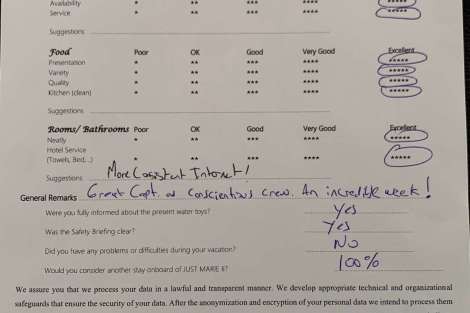 Availability * ** *** **** *****
Service * ** *** **** *****
Suggestions
Food Poor OK Good Very Good Excellent
Presentation * ** *** **** *****
Variety * ** *** **** *****
Quality * ** *** **** *****
Kitchen (clean) * ** *** **** *****
Suggestions
Rooms/ Bathrooms Poor OK Good Very Good Excellent
Neatly * ** *** ****
Hotel Service
(Towels, Bed,...) * ** *** **** *****
Suggestions More Consistent Internet!
General Remarks Great Capt. Conscientious crew. An incredible week!
Were you fully informed about the present water toys? Yes
Was the Safety Briefing clear? Yes
Did you have any problems or difficulties during your vacation? NO
Would you consider another stay onboard of JUST MARIE II? 100%
We assure you that we process your data in a lawful and transparent manner. We develop appropriate technical and organizational
safeguards that ensure the security of your data. After the anonymization and encryption of your personal data we intend to process them